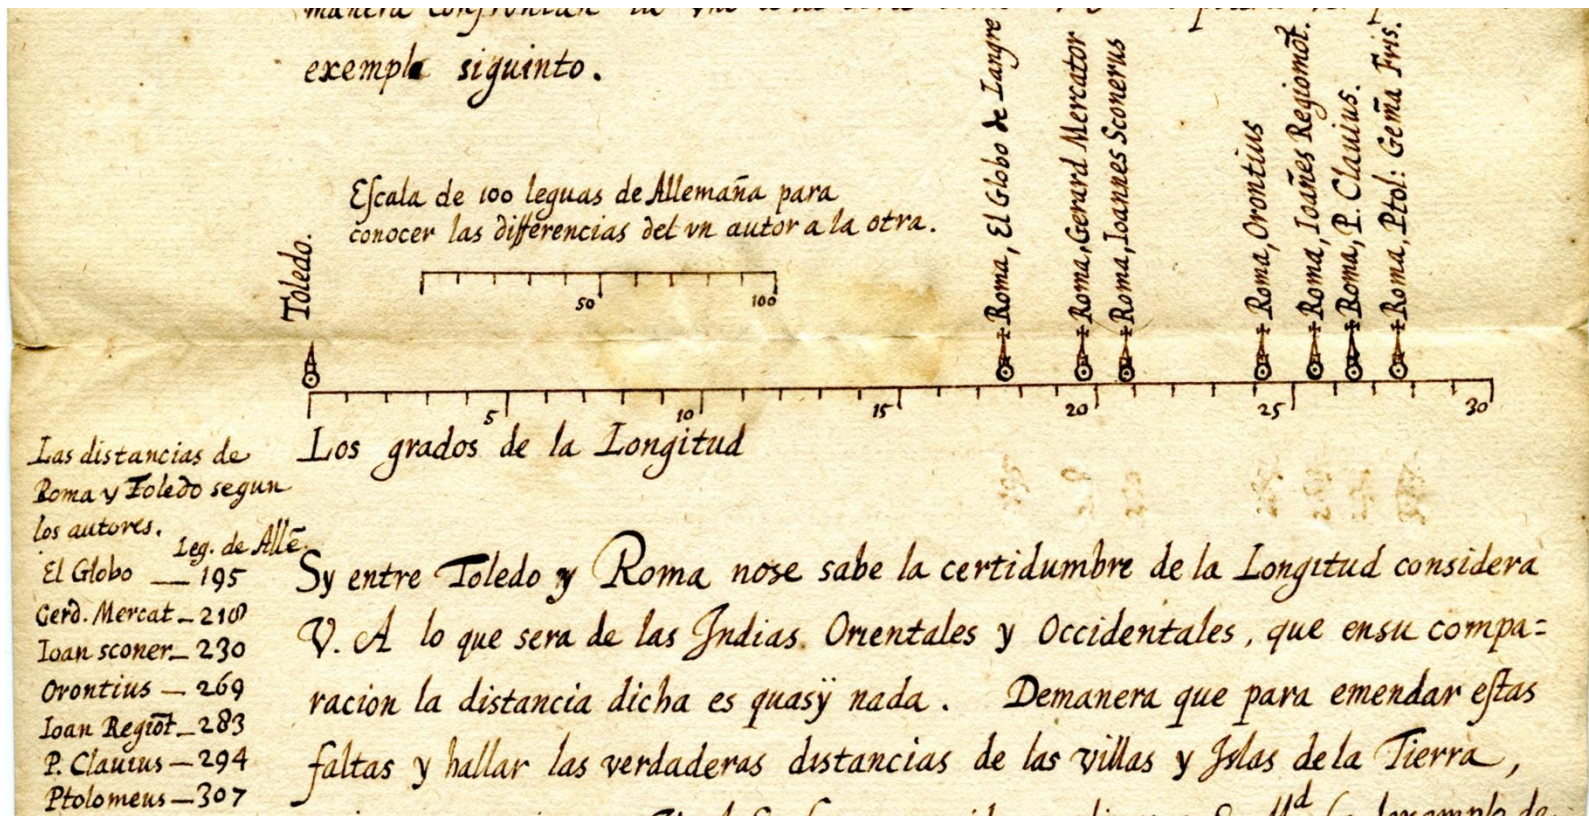 manera confrontan la
exemplo siguinto.
Eſcala de 100 leguas de Allemaña para
conocer las differencias del vn autor a la otra.
50 100
Toledo.
Roma, El Globo de Langre
Roma, Gerard Mercator
Roma, Ioannes Sconerus
Roma, Orontius
Roma, Ioan̄es Regiomōt.
Roma, P. Clauius.
Roma, Ptol: Gem̄a Fris.
5 10 15 20 25 30
Los grados de la Longitud
Las distancias de
Roma y Toledo segun
los autores.
Leg. de Allē.
El Globo — 195
Gerd. Mercat — 218
Ioan sconer — 230
Orontius — 269
Ioan Regiōt — 283
P. Clauius — 294
Ptolomeus — 307
Sy entre Toledo y Roma nose sabe la certidumbre de la Longitud considera
V. A lo que sera de las Indias Orientales y Occidentales, que ensu compa=
racion la distancia dicha es quasÿ nada. Demanera que para emendar eſtas
faltas y hallar las verdaderas distancias de las villas y Islas dela Tierra,